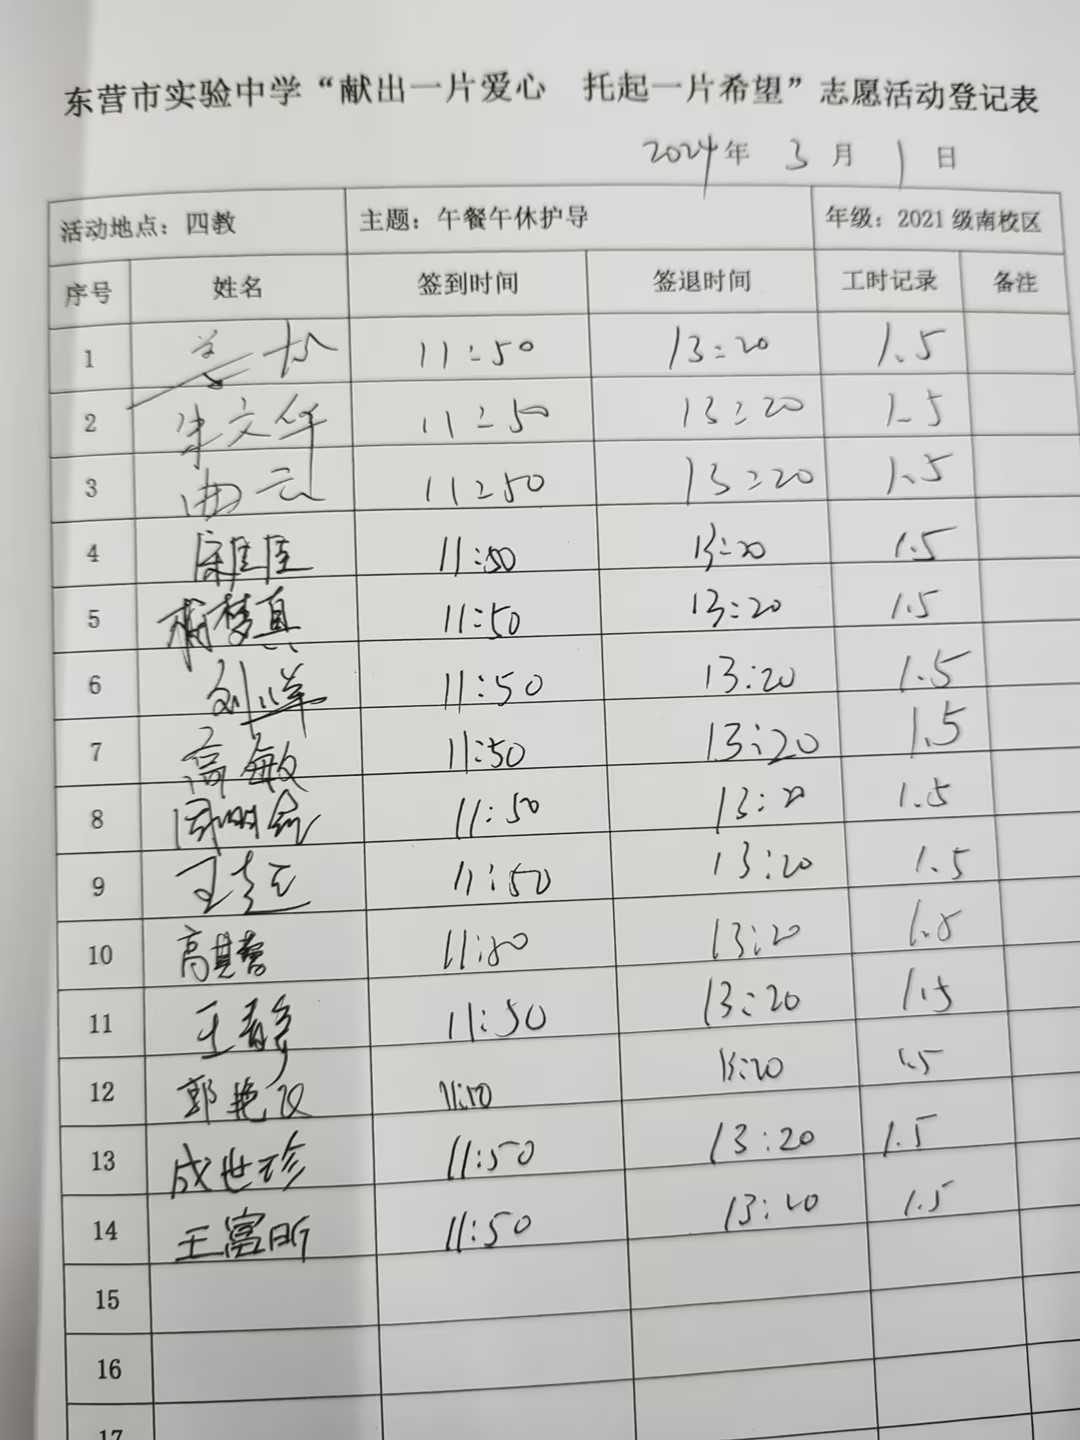 东营市实验中学“献出一片爱心 托起一片希望”志愿活动登记表
2024年 3 月 1 日
活动地点：四教 主题：午餐午休护导 年级：2021 级南校区
序号 姓名 签到时间 签退时间 工时记录 备注
1 11:50 13:20 1.5
2 朱文华 11:50 13:20 1.5
3 曲云 11:50 13:20 1.5
4 11:50 13:20 1.5
5 梦真 11:50 13:20 1.5
6 刘 11:50 13:20 1.5
7 高敏 11:50 13:20 1.5
8 周明 11:50 13:20 1.5
9 王 11:50 13:20 1.5
10 高 11:50 13:20 1.5
11 王静 11:50 13:20 1.5
12 郭艳 11:50 13:20 1.5
13 成世珍 11:50 13:20 1.5
14 王富昕 11:50 13:20 1.5
15
16
17